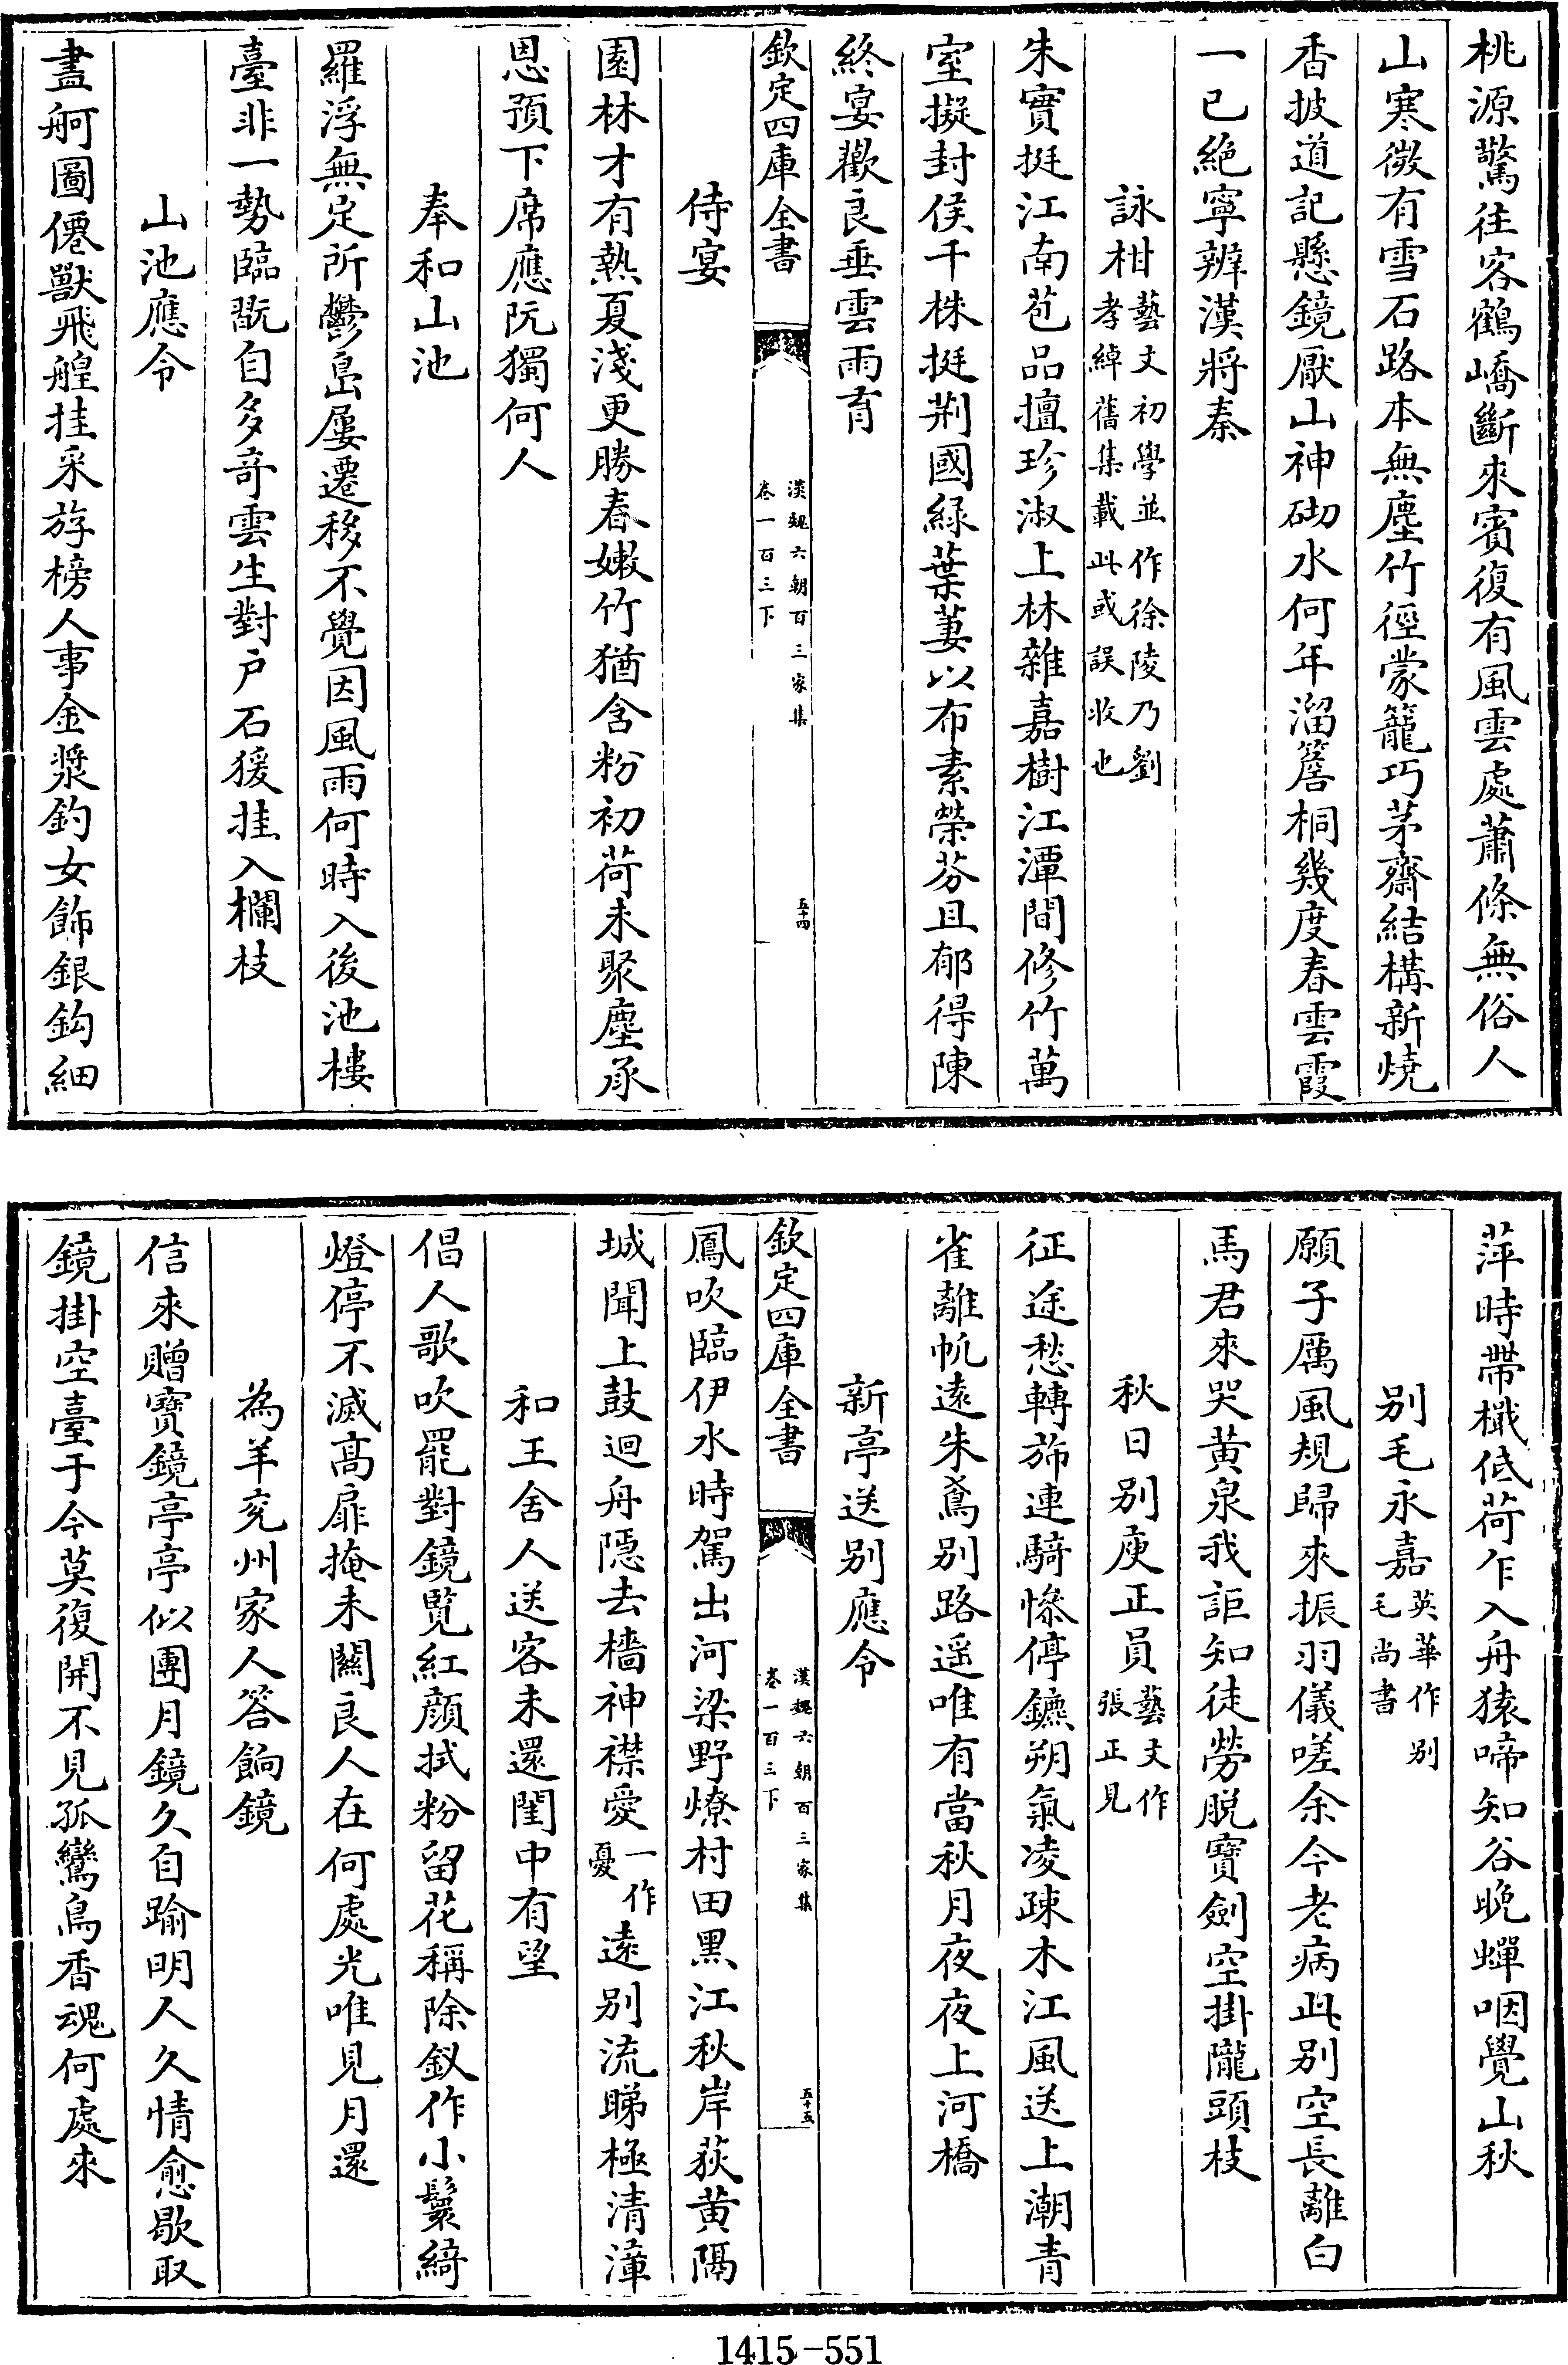 桃源驚往客鶴嶠斷來賓復有風雲處蕭條無俗人
山寒微有雪石路本無塵竹徑蒙籠巧茅齋結構新燒
香披道記懸鏡厭山神砌水何年溜簷桐幾度春雲霞
一已絶寧辨漢將秦
詠柑藝文初學並作徐陵乃劉
孝綽舊集載此或誤收也
朱實挺江南苞品擅珍淑上林雜嘉樹江潭間修竹萬
室擬封侯千株挺荆國緑葉萋以布素榮芬且郁得陳
終宴歡良垂雲雨育
欽定四庫全書
漢魏六朝百三家集
卷一百三下
五十四
侍宴
園林才有熱夏淺更勝春嫩竹猶含粉初荷未聚塵承
恩預下席應阮獨何人
奉和山池
羅浮無定所鬱島屢遷移不覺因風雨何時入後池樓
臺非一勢臨翫自多奇雲生對户石猨挂入欄枝
山池應令
畫舸圖僊獸飛艎挂采斿榜人事金漿釣女飾銀鈎細
萍時帶檝低荷乍入舟猿啼知谷晚蟬咽覺山秋
别毛永嘉英華作别
毛尚書
願子厲風規歸來振羽儀嗟余今老病此别空長離白
馬君來哭黄泉我詎知徒勞脱寶劍空掛隴頭枝
秋日别庾正員藝文作
張正見
征途愁轉斾連騎慘停鑣朔氣凌疎木江風送上潮青
雀離帆遠朱鳶别路遥唯有當秋月夜夜上河橋
新亭送别應令
欽定四庫全書
漢魏六朝百三家集
卷一百三下
五十五
鳳吹臨伊水時駕出河梁野燎村田黑江秋岸荻黄隔
城聞上鼓迴舟隱去檣神襟愛一作
憂遠别流睇極清漳
和王舍人送客未還閨中有望
倡人歌吹罷對鏡覽紅顔拭粉留花稱除釵作小鬟綺
燈停不滅髙扉掩未關良人在何處光唯見月還
為羊兖州家人答餉鏡
信來贈寶鏡亭亭似團月鏡久自踰明人久情愈歇取
鏡掛空臺于今莫復開不見孤鸞鳥香魂何處來
1415-551